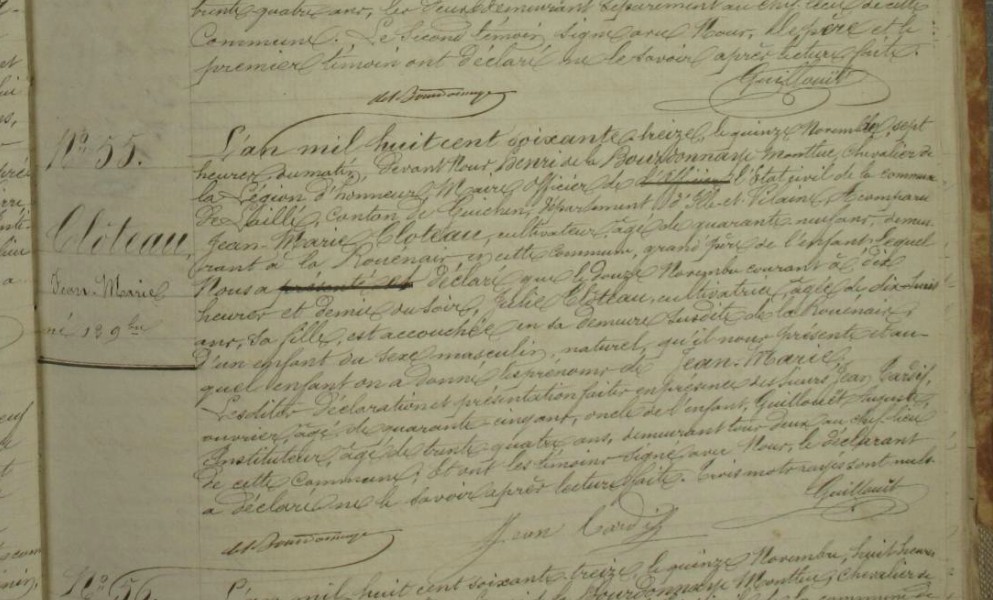 trente quatre ans, les deux demeurant séparement au chef lieu de cette
Commune. Le second témoin signe avec Nous, le père et le
premier témoin ont déclaré ne le savoir après lecture faite.
Guillouët
de la Bourdonnaye
N° 55.
Clôteau,
Jean-Marie
né 12 9bre
L'an mil huit cent soixante treize, le quinze Novembre, sept
heures du matin, devant Nous, Henri de la Bourdonnaye Montluc, Chevalier de
la Légion d'honneur, Maire, Officier de l'Officier l'État civil de la commune
de Laillé, canton de Guichen, département d'Ille-et-Vilaine, a comparu
Jean-Marie Cloteau, cultivateur, âgé de quarante neuf ans, demeu-
rant à la Rouënais en cette commune, grand père de l'enfant, lequel
Nous a présenté et déclaré que le douze Novembre courant à dix
heures et demie du soir, Julie Clôteau, cultivatrice, âgée de dix-huit
ans, sa fille, est accouchée en sa demeure susdite de la Rouënais,
d'un enfant du sexe masculin, naturel, qu'il nous présente et au-
quel enfant on a donné les prénoms de Jean-Marie.
Lesdites déclaration et présentation faites en présence des sieurs Jean Tardif,
ouvrier, âgé de quarante cinq ans, oncle de l'enfant, Guillouët Auguste,
Instituteur, âgé de trente quatre ans, demeurant tous deux au chef-lieu
de cette Commune; Et ont les témoins signé avec Nous, le déclarant
a déclaré ne le savoir après lecture faite. Trois mots rayés sont nuls.
Guillouët
de la Bourdonnaye
Jean Tardif
N° 56.
L'an mil huit cent soixante treize, le quinze Novembre, huit heures
Bourdonnaye Montluc, Chevalier de